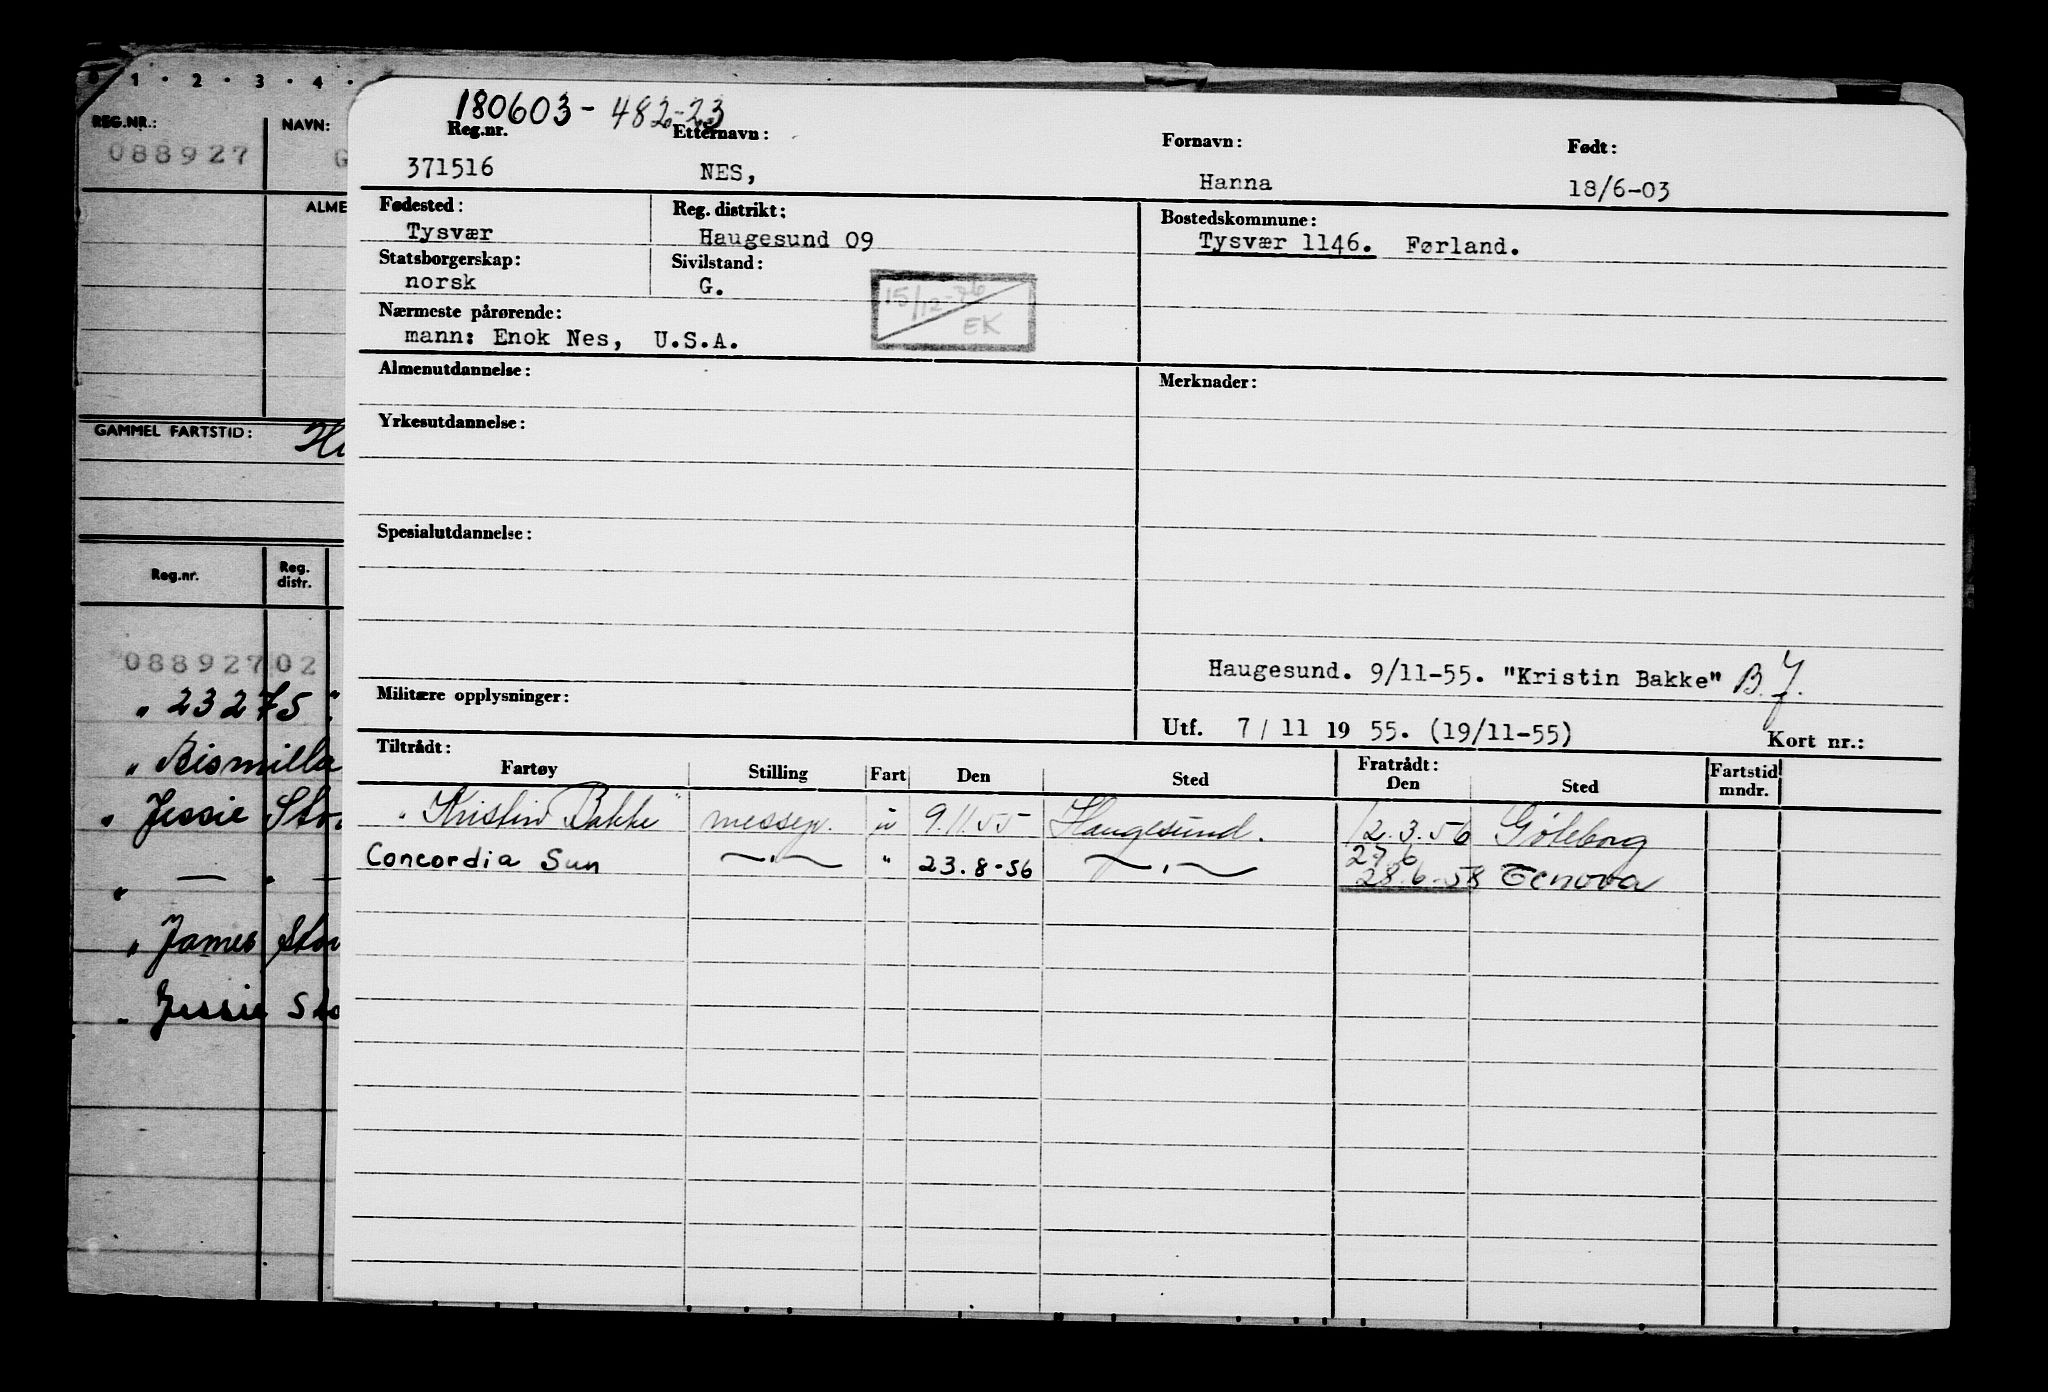 0 · 1 · 2 · 3 · 4 ·
REG.NR.: NAVN:
088927 G
ALME
GAMMEL FARTSTID:
Reg.nr. Reg. distr.
08892702
" 23275 "
" Bismilla
" Jessie Sto
" — " —
" James Sto
" Jessie Sto
180603-482-23
Reg.nr. Etternavn: Fornavn: Født:
371516 NES, Hanna 18/6-03
Fødested: Reg. distrikt: Bostedskommune:
Tysvær Haugesund 09 Tysvær 1146. Førland.
Statsborgerskap: Sivilstand:
norsk G.
15/12-76
EK
Nærmeste pårørende:
mann: Enok Nes, U.S.A.
Almenutdannelse: Merknader:
Yrkesutdannelse:
Spesialutdannelse:
Haugesund. 9/11-55. "Kristin Bakke" B.J.
Militære opplysninger:
Utf. 7/11 1955. (19/11-55) Kort nr.:
Tiltrådt: Fratrådt:
Fartøy Stilling Fart Den Sted Den Sted Fartstid mndr.
"Kristin Bakke" messep. u 9.11.55 Haugesund. 12.3.56 Göteborg
27 6
Concordia Sun —"— " 23.8-56 —"— 28.6-58 Genova